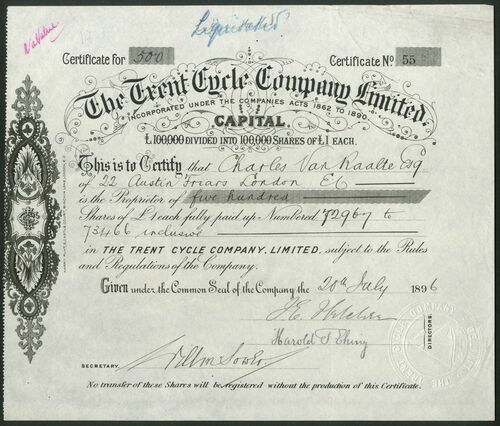 Liquidated
No Value
Certificate for 500
Certificate No 55
The Trent Cycle Company Limited.
INCORPORATED UNDER THE COMPANIES ACTS 1862 TO 1890
CAPITAL.
£100,000 DIVIDED INTO 100,000 SHARES OF £1 EACH.
This is to Certify that Charles Van Raalte Esq
of 22 Austin Friars London EC
is the Proprietor of five hundred
Shares of £1 each fully paid up Numbered 72967 to
73466 inclusive
in THE TRENT CYCLE COMPANY, LIMITED, subject to the Rules
and Regulations of the Company.
Given under the Common Seal of the Company the 20th July 1896
Harold J
DIRECTORS.
SECRETARY.
No transfer of these Shares will be registered without the production of this Certificate.